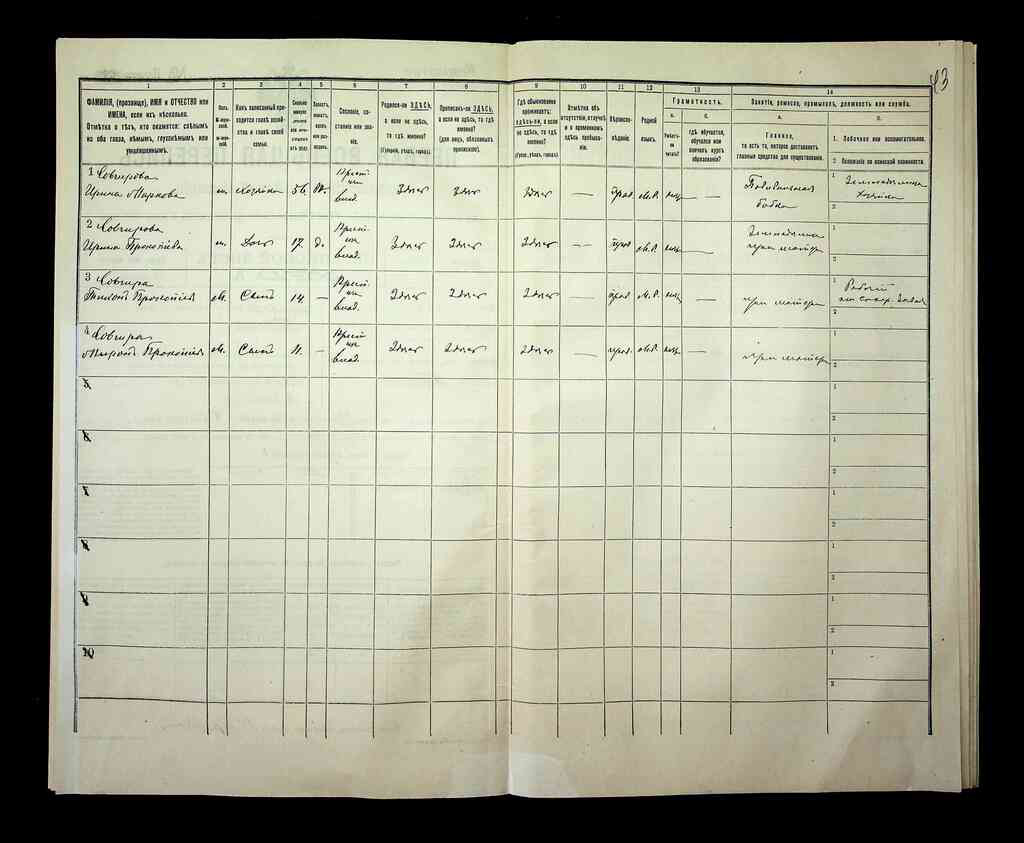 43
1 2 3 4 5 6 7 8 9 10 11 12 13 14
ФАМИЛІЯ, (прозвище), ИМЯ и ОТЧЕСТВО или
ИМЕНА, если ихъ нѣсколько.
Отмѣтка о тѣхъ, кто окажется: слѣпымъ
на оба глаза, нѣмымъ, глухонѣмымъ или
умалишеннымъ.
Полъ.
Какъ записанный при-
ходится главѣ хозяй-
ства и главѣ своей
семьи.
Сословіе, со-
стояніе или зва-
ніе.
Родился-ли ЗДѢСЬ,
а если не здѣсь,
то гдѣ именно?
(Губернія, уѣздъ, городъ).
Приписанъ-ли ЗДѢСЬ,
а если не здѣсь, то гдѣ
именно?
(для лицъ, обязанныхъ
припиской).
Гдѣ обыкновенно
проживаетъ:
здѣсь-ли, а если
не здѣсь, то гдѣ
именно?
(Губерн., уѣздъ, городъ).
Отмѣтка объ
отсутствіи, отлучкѣ
и о временномъ
здѣсь пребыва-
ніи.
Вѣроиспо-
вѣданіе.
Родной
языкъ.
Грамотность.
а. б.
Умѣетъ-
ли
читать?
гдѣ обучается,
обучался или
кончилъ курсъ
образованія?
Занятіе, ремесло, промыселъ, должность или служба.
а. б.
Главное,
то есть то, которое доставляетъ
главныя средства для существованія.
1. Побочное или вспомогательное.
2 Положеніе по воинской повинности.
1 Совгирова
Ирина Маркова ж. Хозяйка 56 Вд. Крест. влад. Здѣсь Здѣсь Здѣсь — прав. М.Р. нѣтъ — 1
2
2 Совгирова
Ирина Прокопіева ж. Дочь 17 д. Крест. влад. Здѣсь Здѣсь Здѣсь — прав. М.Р. нѣтъ — при матери 1
2
3 Совгира
Прокопіев м. Сынъ 14 — Крест. влад. Здѣсь Здѣсь Здѣсь — прав. М.Р. нѣтъ — при матери 1 Рабочій
2
4 Совгира
Прокопіев м. Сынъ 11 — Крест. влад. Здѣсь Здѣсь Здѣсь — прав. М.Р. нѣтъ — при матери 1
2
5 1
2
6 1
2
7 1
2
8 1
2
9 1
2
10 1
2